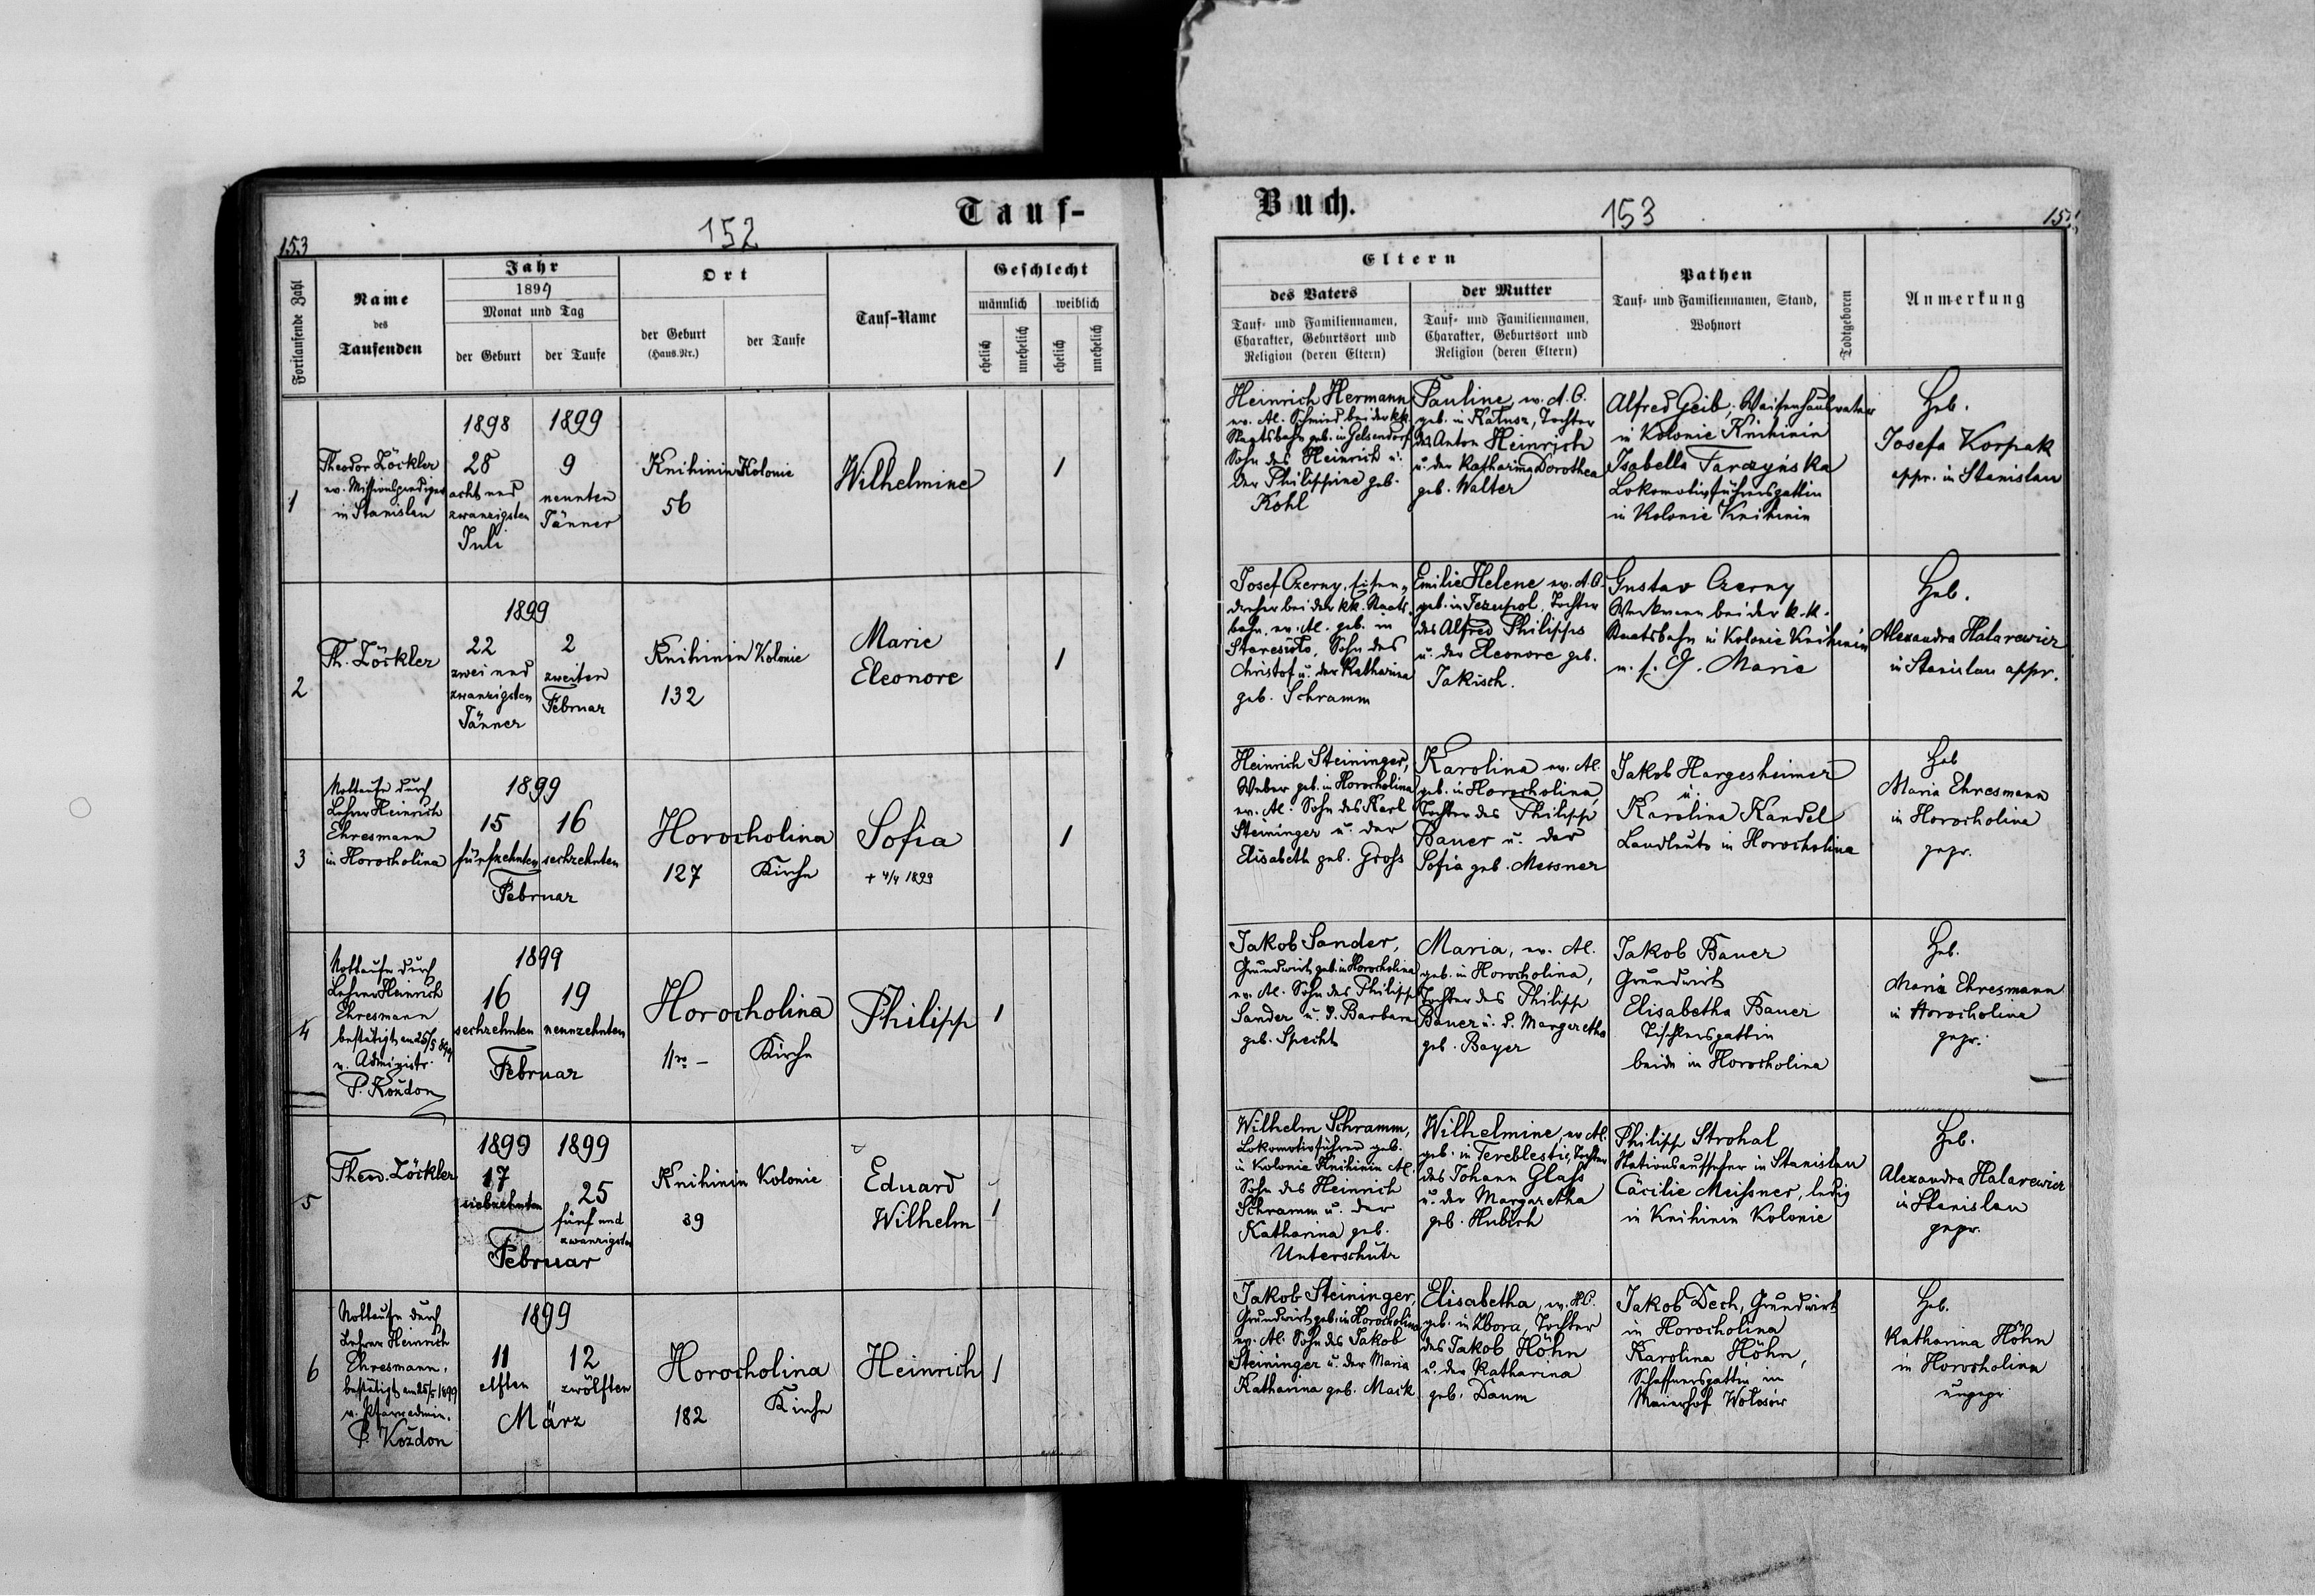 Tauf-
152
153
Fortlaufende Zahl
Name
des
Taufenden
Jahr
1899
Monat und Tag
der Geburt
der Taufe
Ort
der Geburt
(Haus-Nr.)
der Taufe
Tauf-Name
Geschlecht
männlich
weiblich
ehelich
unehelich
ehelich
unehelich
1
Theodor Zöckler
ev. Missionsprediger
in Stanislau
1898
28
acht und
zwanzigsten
Juli
1899
9
neunten
Jänner
Knihinin Kolonie
56
Wilhelmine
1
2
Th. Zöckler
1899
22
zwei und
zwanzigsten
Jänner
2
zweiten
Februar
Knihinin Kolonie
132
Marie
Eleonore
1
3
Nottaufe durch
Lehrer Heinrich
Ehresmann
in Horocholina
1899
15 16
fünfzehnten sechzehnten
Februar
Horocholina
127 Kirche
Sofia
+ 4/4 1899
1
4
Nottaufe durch
Lehrer Heinrich
Ehresmann
bestätigt am 25/5 899
v. Administr.
P. Kozdon
1899
16 19
sechzehnten neunzehnten
Februar
Horocholina
Kirche
Philipp
1
5
Theod. Zöckler
1899 1899
17
siebzehnten
25
fünf und
zwanzigsten
Februar
Knihinin Kolonie
39
Eduard
Wilhelm
1
6
Nottaufe durch
Lehrer Heinrich
Ehresmann,
bestätigt am 25/5 1899
v. Pfarradmin.
P. Kozdon
1899
11 12
elften zwölften
März
Horocholina
182 Kirche
Heinrich
1
Buch.
153
Eltern
des Vaters
Tauf- und Familiennamen,
Charakter, Geburtsort und
Religion (deren Eltern)
der Mutter
Tauf- und Familiennamen,
Charakter, Geburtsort und
Religion (deren Eltern)
Pathen
Tauf- und Familiennamen, Stand,
Wohnort
Todtgeboren
Anmerkung
Heinrich Hermann
ev. Al. Schmied bei der kk
Staatsbahn geb. in Gelsendorf
Sohn des Heinrich u.
der Philippine geb.
Kohl
Pauline, ev. A. C.
geb. in Kalusz, Tochter
des Anton Heinrich
u. der Katharina Dorothea
geb. Walter
Alfred Geib, Waisenhausvater
in Kolonie Knihinin
Isabella Tarczyńska
Lokomotivführersgattin
in Kolonie Knihinin
Heb.
Josefa Korpak
appr. in Stanislau
Josef Czerny, Eisen-
dreher bei der kk. Staats-
bahn, ev. Al. geb. in
Sohn des
Christof u. der Katharina
geb. Schramm
Emilie Helene ev. A. C.
geb. in Jezupol, Tochter
des Alfred Philipps
u. der Eleonore geb.
Jakisch.
Gustav Czerny
Werkmann bei der k. k.
Staatsbahn in Kolonie Knihinin
u. s. G. Marie
Heb.
Alexandra Halarewicz
in Stanislau appr.
Heinrich Steininger,
Weber geb. in Horocholina
ev. Al. Sohn des Karl
Steininger u. der
Elisabeth geb. Gross
Karolina ev. Al.
geb. in Horocholina,
Tochter des Philipp
Bauer u. der
Sofia geb. Messner
Jakob Hargesheimer
u.
Karolina Kandel
Landleute in Horocholina
Heb
Maria Ehresmann
in Horocholina
gepr.
Jakob Sander,
Grundwirt geb. in Horocholina
ev. Al. Sohn des Philipp
Sander u. d. Barbara
geb. Specht
Maria, ev. Al.
geb. in Horocholina,
Tochter des Philipp
Bauer u. d. Margaretha
geb. Bayer
Jakob Bauer
Grundwirt
Elisabetha Bauer
Tischlersgattin
beide in Horocholina
Heb.
Maria Ehresmann
in Horocholina
gepr.
Wilhelm Schramm,
Lokomotivführer geb.
in Kolonie Knihinin Al.
Sohn des Heinrich
Schramm u. der
Katharina geb.
Unterschütz
Wilhelmine, ev Al.
geb. in Tereblestie, Tochter
des Johann Glass
u. der Margaretha
geb. Hubich
Philipp Strohal
Stationsaufseher in Stanislau
Cäcilie Meissner, ledig
in Knihinin Kolonie
Heb.
Alexandra Halarewicz
in Stanislau
gepr.
Jakob Steininger,
Grundwirt geb. in Horocholina
ev. Al. Sohn des Jakob
Steininger u. der Maria
Katharina geb. Mack
Elisabetha, ev. HC.
geb. in Ugora, Tochter
des Jakob Höhn
u. der Katharina
geb. Daum
Jakob Dech, Grundwirt
in Horocholina
Karolina Höhn,
Schaffnersgattin in
Maierhof Wołosów
Heb.
Katharina Höhn
in Horocholina
ungepr.